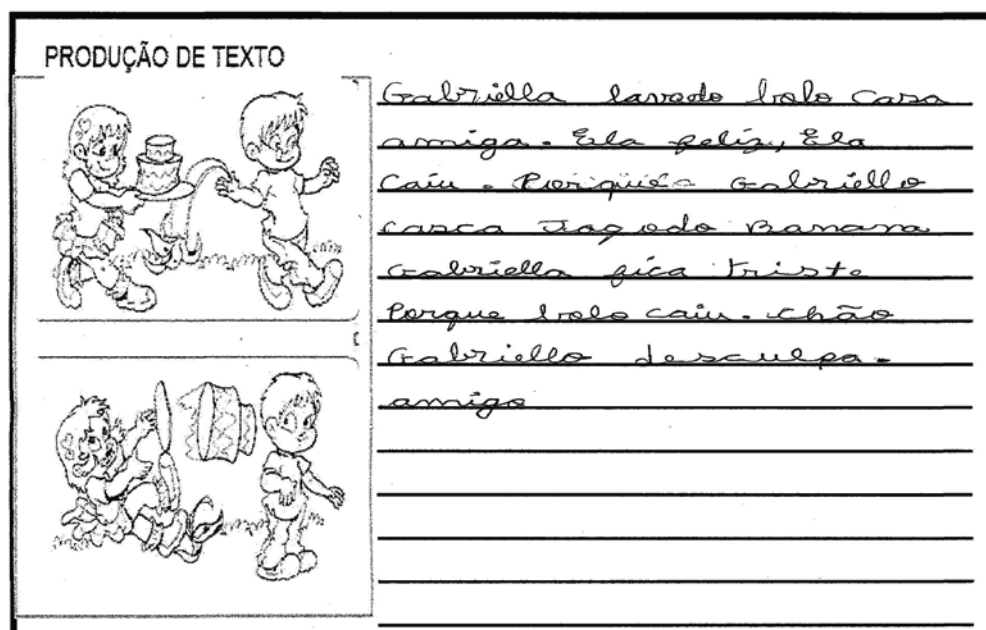 PRODUÇÃO DE TEXTO
Gabriella lavado bolo casa
amiga. Ela feliz, Ela
caiu. Gabriella
casca Jogado Banana
Gabriella fica triste
Porque bolo caiu. chão
Gabriella desculpa.
amigo